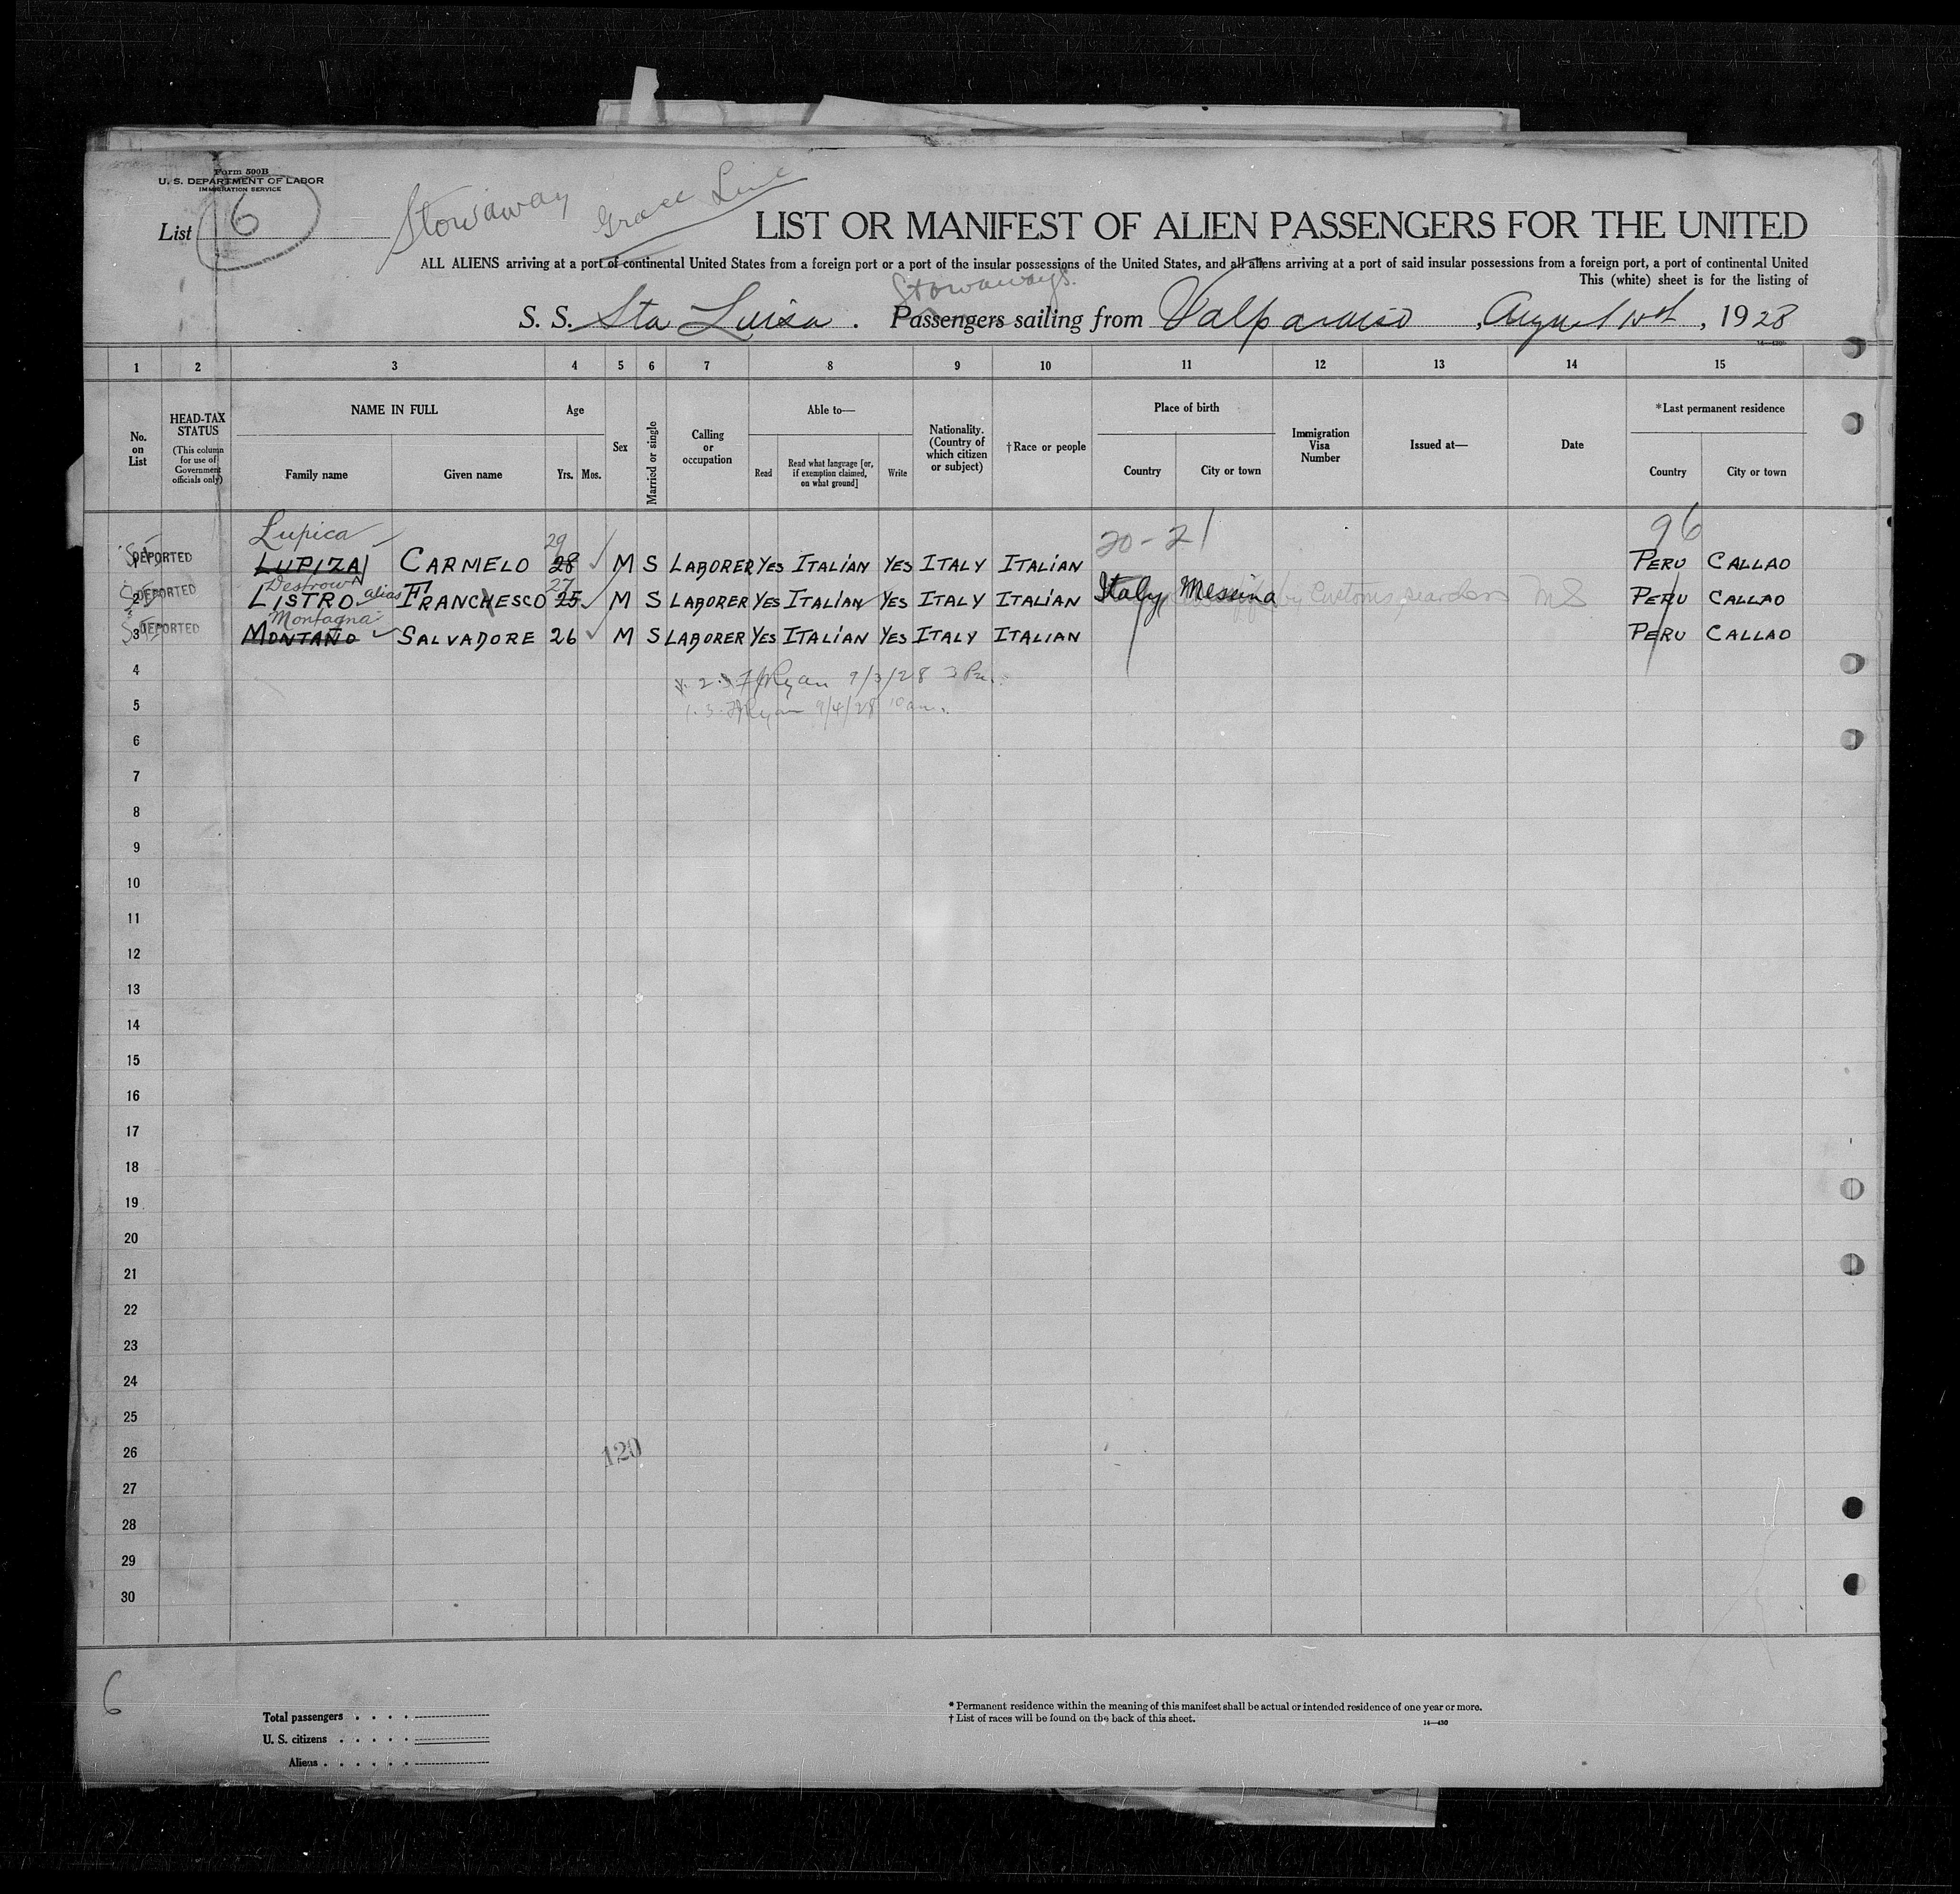 Form 500B
U. S. DEPARTMENT OF LABOR
IMMIGRATION SERVICE
List 6
Stowaway Grace Line
LIST OR MANIFEST OF ALIEN PASSENGERS FOR THE UNITED
ALL ALIENS arriving at a port of continental United States from a foreign port or a port of the insular possessions of the United States, and all aliens arriving at a port of said insular possessions from a foreign port, a port of continental United
This (white) sheet is for the listing of
Stowaways.
S. S. Sta Luisa. Passengers sailing from Valparaiso, August, 1928
1 2 3 4 5 6 7 8 9 10 11 12 13 14 15
No. on List
HEAD-TAX STATUS
(This column for use of Government officials only)
NAME IN FULL
Family name
Given name
Age
Yrs. Mos.
Sex
Married or single
Calling or occupation
Able to—
Read
Read what language [or, if exemption claimed, on what ground]
Write
Nationality. (Country of which citizen or subject)
†Race or people
Place of birth
Country
City or town
Immigration Visa Number
Issued at—
Date
*Last permanent residence
Country
City or town
Lupica 29 20-21 96
1 DEPORTED LUPIZA CARMELO 28 M S LABORER YES ITALIAN YES ITALY ITALIAN PERU CALLAO
Destrow 27
2 DEPORTED LISTRO alias FRANCHESCO 25 M S LABORER YES ITALIAN YES ITALY ITALIAN Italy Messina by Customs searchers MS PERU CALLAO
Montagna
3 DEPORTED MONTAÑO SALVADORE 26 M S LABORER YES ITALIAN YES ITALY ITALIAN PERU CALLAO
4 Ryan 9/3/28
5 Ryan 9/4/28 10 am.
6
7
8
9
10
11
12
13
14
15
16
17
18
19
20
21
22
23
24
25
26 120
27
28
29
30
6
Total passengers
U. S. citizens
Aliens
* Permanent residence within the meaning of this manifest shall be actual or intended residence of one year or more.
† List of races will be found on the back of this sheet.
14—430